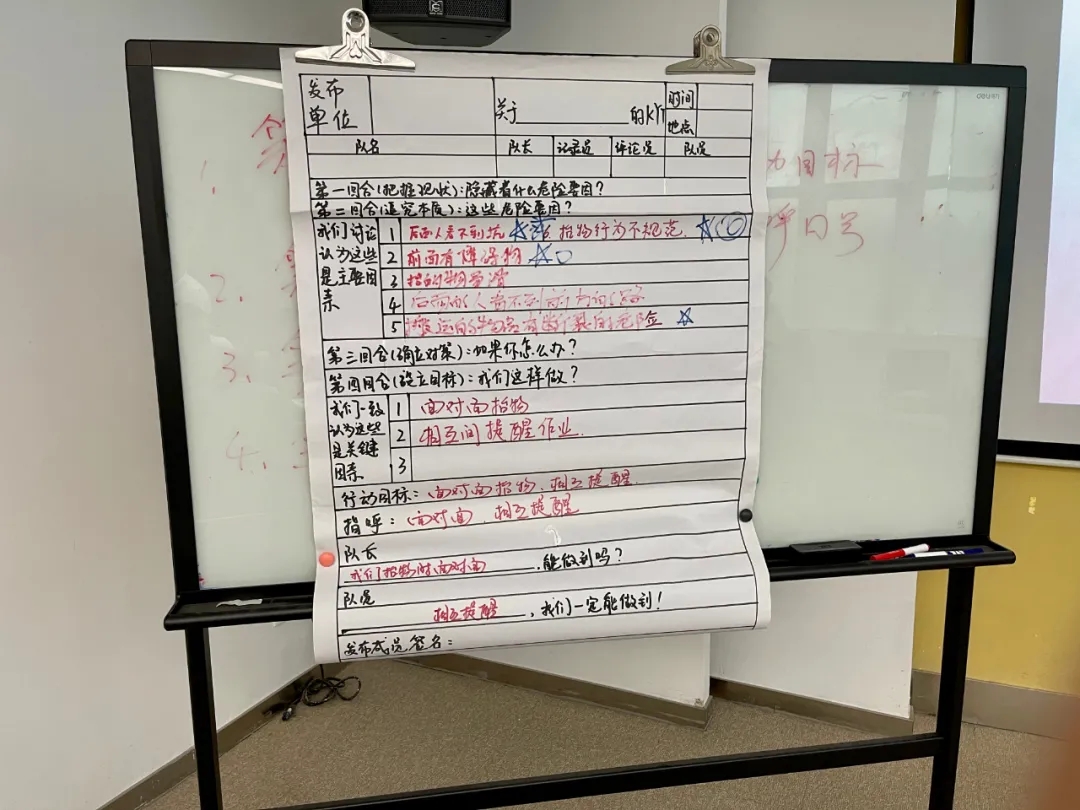 发布单位
关于 的KYT
时间
地点
队名 队长 记录员 评论员 队员
第一回合(把握现状):隐藏着什么危险要因?
第二回合(追究本质):这些危险要因?
我们讨论认为这些是主要因素
1 后面人看不到坑 抬物行为不规范.
2 前面有障碍物
3
4 后面的人看不到前方的
5 的危险
第三回合(确立对策):如果你怎么办?
第四回合(设立目标):我们这样做?
我们一致认为这些是关键因素
1 面对面抬物
2 相互间提醒作业.
3
行动目标:面对面抬物、相互提醒.
指呼:面对面、相互提醒
队长
我们抬物时面对面 .能做到吗?
队员
相互提醒 ,我们一定能做到!
发布成员签名:
1.
2.
3.
4.
目标
呼口号
deli